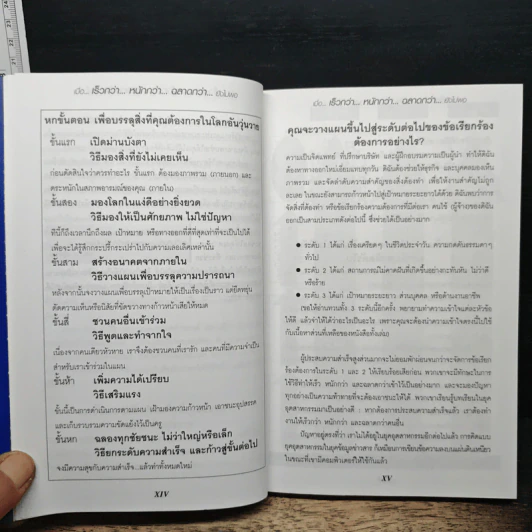 เมื่อ... เร็วกว่า... หนักกว่า... ฉลาดกว่า... ยังไม่พอ
หกขั้นตอน เพื่อบรรลุสิ่งที่คุณต้องการในโลกอันวุ่นวาย
ขั้นแรก เปิดม่านบังตา
วิธีมองสิ่งที่ยังไม่เคยเห็น
ก่อนตัดสินใจว่าควรทำอะไร ขั้นแรก ต้องมองภาพรวม (ภายนอก) และ
ตระหนักในสภาพอารมณ์ของคุณ (ภายใน)
ขั้นสอง มองโลกในแง่ดีอย่างยิ่งยวด
วิธีมองให้เป็นศักยภาพ ไม่ใช่ปัญหา
ทีนี้ก็ถึงเวลานึกถึงผล เป้าหมาย หรือทางออกที่ดีที่สุดเท่าที่จะเป็นไปได้
เพื่อจะได้รู้สึกกระปรี้กระเปร่าไปกับความเลอเลิศเหล่านั้น
ขั้นสาม สร้างอนาคตจากภายใน
วิธีวางแผนเพื่อบรรลุความปรารถนา
หลังจากนั้นจงวางแผนเพื่อบรรลุเป้าหมายให้เป็นเรื่องเป็นราว แต่ยืดหยุ่น
ตัดความเห็นหรือนิสัยที่ขัดขวางทางก้าวหน้าเสียให้หมด
ขั้นสี่ ชวนคนอื่นเข้าร่วม
วิธีพูดและทำจากใจ
เนื่องจากคนเดียวหัวหาย เราจึงต้องชวนคนที่เรารัก และคนที่มีความจำเป็น
สำหรับเราเข้าร่วมในแผน
ขั้นห้า เพิ่มความได้เปรียบ
วิธีเสริมแรง
ขั้นนี้เป็นการดำเนินการตามแผน เฝ้ามองความก้าวหน้า เอาชนะอุปสรรค
และเก็บรวบรวมความขัดแย้งไว้เป็นครู
ขั้นหก ฉลองทุกชัยชนะ ไม่ว่าใหญ่หรือเล็ก
วิธียกระดับความสำเร็จ และก้าวสู่ขั้นต่อไป
จงมีความสุขกับความสำเร็จ...แล้วทำทั้งหมดใหม่
XIV
เมื่อ... เร็วกว่า... หนักกว่า... ฉลาดกว่า... ยังไม่พอ
คุณจะวางแผนขึ้นไปสู่ระดับต่อไปของข้อเรียกร้อง
ต้องการอย่างไร?
ความเป็นจิตแพทย์ ที่ปรึกษาบริษัท และผู้ฝึกอบรมความเป็นผู้นำ ทำให้ดิฉัน
ต้องหาทางออกใหม่เรียบแทบทุกวัน ดิฉันต้องช่วยให้ธุรกิจ และบุคคลมองเห็น
ภาพรวม และจัดลำดับความสำคัญของสิ่งต้องทำ เพื่อให้งานสำคัญไม่ถูก
ละเลย ในขณะยังสามารถก้าวหน้าไปสู่เป้าหมายระยะยาวได้ด้วย ดิฉันพบว่าการ
จัดสิ่งที่ต้องทำ หรือข้อเรียกร้องความต้องการที่มีต่อเรา คนใช้ (ผู้จ้างของดิฉัน
ออกเป็นสามประเภทดังต่อไปนี้ ซึ่งช่วยได้เป็นอย่างมาก
● ระดับ 1 ได้แก่ เรื่องเครียดๆ ในชีวิตประจำวัน ความกดดันธรรมดาๆ
ทั่วไป
● ระดับ 2 ได้แก่ สถานการณ์ไม่คาดฝันที่เกิดขึ้นอย่างกะทันหัน ไม่ว่าดี
หรือร้าย
● ระดับ 3 ได้แก่ เป้าหมายระยะยาว ส่วนบุคคล หรือด้านงานอาชีพ
ขอให้อ่านทวนทั้ง 3 ระดับนี้อีกครั้ง พยายามทำความเข้าใจแต่ละหัวข้อ
ให้ดี แล้วจำให้ได้ว่าอะไรเป็นอะไร เพราะคุณจะต้องนำความเข้าใจตรงนี้ไปใช้
กับเนื้อหาส่วนที่เหลือของหนังสือทั้งเล่ม
ผู้ประสบความสำเร็จสูงส่วนมากจะไม่ยอมพักผ่อนจนกว่าจะจัดการข้อเรียก
ร้องต้องการในระดับ 1 และ 2 ให้เรียบร้อยเสียก่อน พวกเขาจะมีทักษะในการ
ใช้วิธีทำให้เร็ว หนักกว่า และฉลาดกว่าเข้าไว้เป็นอย่างมาก และจะมองปัญหา
ทุกอย่างเป็นความท้าทายที่จะต้องเอาชนะให้ได้ พวกเขาเรียนรู้บทเรียนในยุค
อุตสาหกรรมมาเป็นอย่างดี : หากต้องการประสบความสำเร็จแล้ว เราต้องทำ
งานให้เร็วกว่า หนักกว่า และฉลาดกว่าคนอื่น
ปัญหาอยู่ตรงที่ว่า เราไม่ได้อยู่ในยุคอุตสาหกรรมอีกต่อไปแล้ว การคิดแบบ
ยุคอุตสาหกรรมในยุคข้อมูลข่าวสาร ก็เหมือนการเขียนข้อความลงบนแผ่นดินเหนียว
ในขณะที่เขามีคอมพิวเตอร์ให้ใช้กันแล้ว
XV